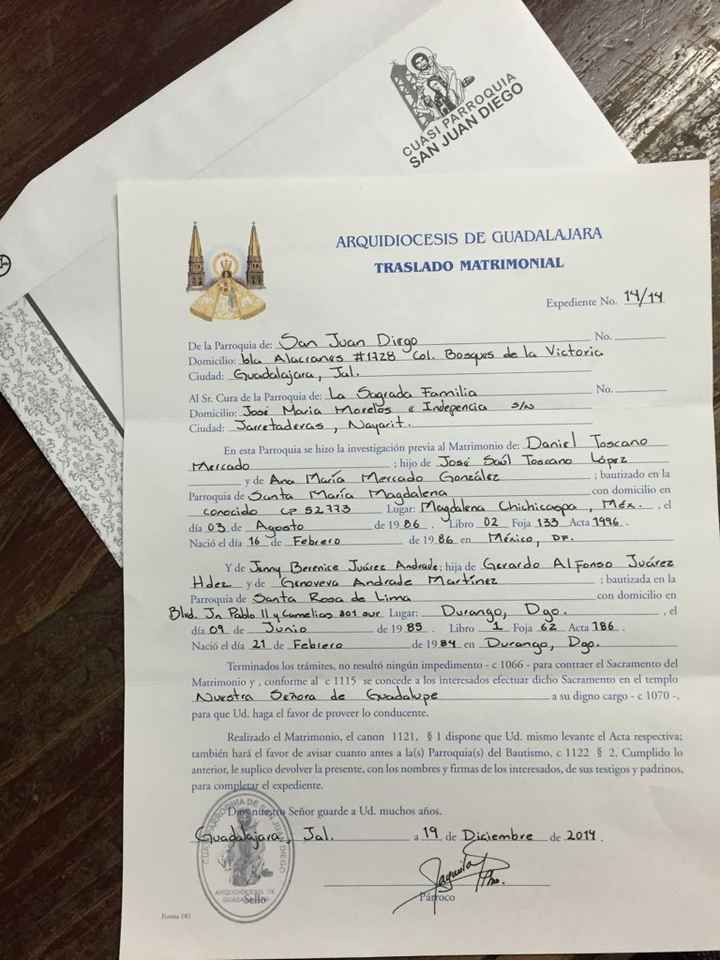 CUASI PARROQUIA
SAN JUAN DIEGO
ARQUIDIOCESIS DE GUADALAJARA
TRASLADO MATRIMONIAL
Expediente No. 14/14
De la Parroquia de: San Juan Diego No.
Domicilio: bla Alacranes #1728 Col. Bosques de la Victoria
Ciudad: Guadalajara, Jal.
Al Sr. Cura de la Parroquia de: La Sagrada Familia No.
Domicilio: José Maria Morelos e Indepencia s/n
Ciudad: Jarretaderas, Nayarit.
En esta Parroquia se hizo la investigación previa al Matrimonio de: Daniel Toscano
Mercado ; hijo de José Saúl Toscano López
y de Ana María Mercado González ; bautizado en la
Parroquia de Santa María Magdalena con domicilio en
conocido CP 52773 Lugar: Magdalena Chichicaspa, Méx. , el
día 03 de Agosto de 1986 . Libro 02 Foja 133 Acta 1996 .
Nació el día 16 de Febrero de 1986 en México, DF.
Y de Jenny Berenice Juárez Andrade; hija de Gerardo Alfonso Juárez
Hdez y de Genoveva Andrade Martínez ; bautizada en la
Parroquia de Santa Rosa de Lima con domicilio en
Blvd. Jn Pablo II y Camelias 801 sur Lugar: Durango, Dgo. , el
día 09 de Junio de 1985 . Libro 1 Foja 62 Acta 186 .
Nació el día 21 de Febrero de 1984 en Durango, Dgo.
Terminados los trámites, no resultó ningún impedimento - c 1066 - para contraer el Sacramento del
Matrimonio y , conforme al c 1115 se concede a los interesados efectuar dicho Sacramento en el templo
Nuestra Señora de Guadalupe a su digno cargo - c 1070 -,
para que Ud. haga el favor de proveer lo conducente.
Realizado el Matrimonio, el canon 1121, § 1 dispone que Ud. mismo levante el Acta respectiva;
también hará el favor de avisar cuanto antes a la(s) Parroquia(s) del Bautismo, c 1122 § 2. Cumplido lo
anterior, le suplico devolver la presente, con los nombres y firmas de los interesados, de sus testigos y padrinos,
para completar el expediente.
Dios nuestro Señor guarde a Ud. muchos años.
Guadalajara, Jal. a 19 de Diciembre de 2014.
CUASI PARROQUIA DE SAN JUAN DIEGO
ARQUIDIOCESIS DE
GUADALAJARA
Sello
Párroco
Forma 181